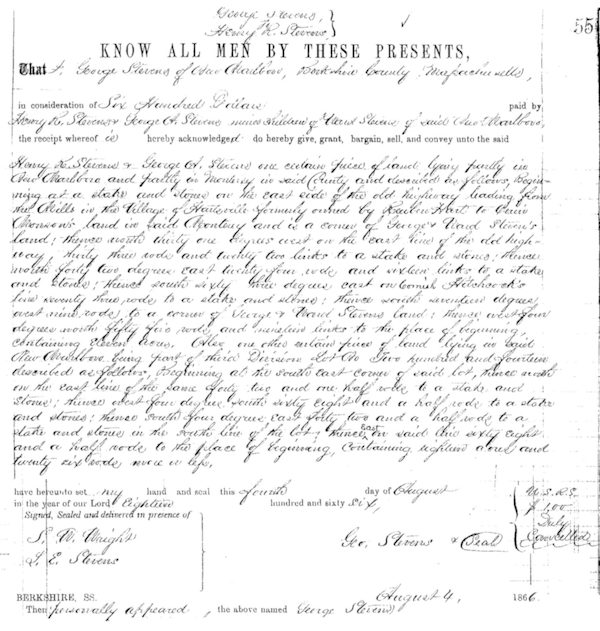 George Stevens,
to
Henry R. Stevens,
55
KNOW ALL MEN BY THESE PRESENTS,
That I, George Stevens of New Marlboro, Berkshire County Massachusetts,
in consideration of Six Hundred Dollars paid by
Henry R. Stevens & George A. Stevens minor children of Ward Stevens of said New Marlboro,
the receipt whereof is hereby acknowledged do hereby give, grant, bargain, sell, and convey unto the said
Henry R. Stevens & George A. Stevens one certain piece of land lying partly in
New Marlboro and partly in Monterey in said County and described as follows, Begin-
ning at a stake and stones on the east side of the old highway leading from
the Mills in the Village of Hartsville formerly owned by Reuben Hart to
Monson's land in said Monterey and is a corner of George & Ward Steven's
land; thence north thirty one degrees west on the east line of the old high-
way, thirty three rods and twenty two links to a stake and stones; thence
north forty two degrees east twenty four rods and sixteen links to a stake
and stones; thence south sixty three degrees east on Hitchcock's
line seventy three rods to a stake and stones; thence south seventeen degrees
west nine rods to a corner of George & Ward Stevens land; thence west four
degrees north fifty five rods and nineteen links to the place of beginning,
containing eleven acres, Also, one other certain piece of land lying in said
New Marlboro being part of third Division Lot No Two hundred and fourteen
described as follows, Beginning at the south east corner of said lot, thence north
on the east line of the same forty two and one half rods to a stake and
stones; thence west four degrees south sixty eight and a half rods to a stake
and stones; thence south four degrees east forty two and a half rods to a
stake and stones in the south line of the lot; thence East on said line sixty eight
and a half rods to the place of beginning, containing eighteen acres and
twenty six rods more or less,
have hereunto set my hand and seal this fourth day of August
in the year of our Lord Eighteen hundred and sixty six,
Signed, Sealed and delivered in presence of
S. W. Wright
S. E. Stevens
Geo. Stevens & Seal
U. S. R. S.
$1,00
Duly
Cancelled
August 4, 1866.
BERKSHIRE, SS.
Then personally appeared, the above named George Stevens